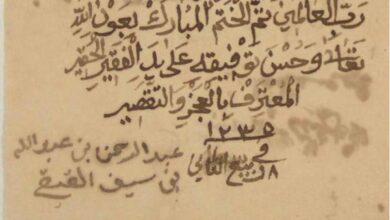 رب العالمين تم الختم المبارك بعون الله
تعالى وحسن توفيقه على يد الفقير الحقير
المعترف بالعجز والتقصير
١٢٣٥
في ١٨ ربيع الثاني
عبد الرحمن بن عبد الله
بن سيف